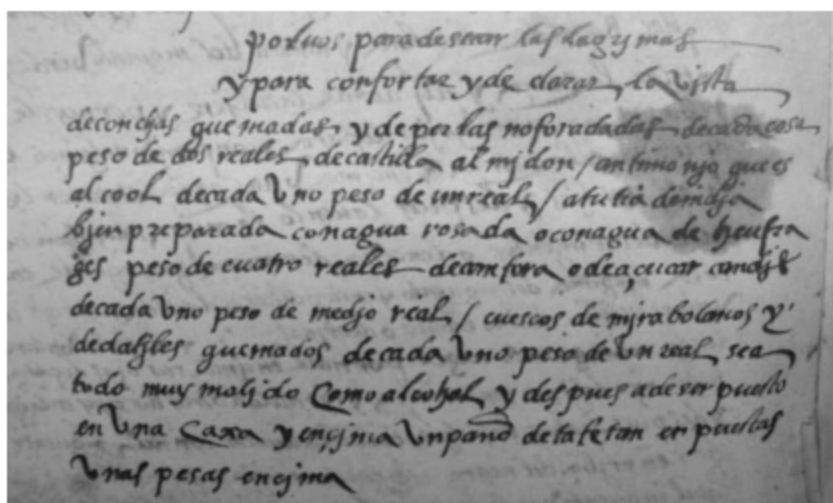 poluos para desecar las lagrimas
y para confortar y de clarar la vista
de conchas quemadas y de perlas no foradadas de cada cosa
peso de dos reales de castilla almidon / antimonjo que es
alcool de cada vno peso de un real / atutia
bjen preparada con agua rosada o con agua de heufra
ges peso de cuatro reales de camfora o de açucar candj
de cada vno peso de medjo real / cuescos de mjrabolanos y
de datjles quemados de cada vno peso de vn real sea
todo muy moljdo como alcohol y despues a de ser puesto
en vna caxa y ençima vn paño de tafetan puestas
vnas pesas encjma